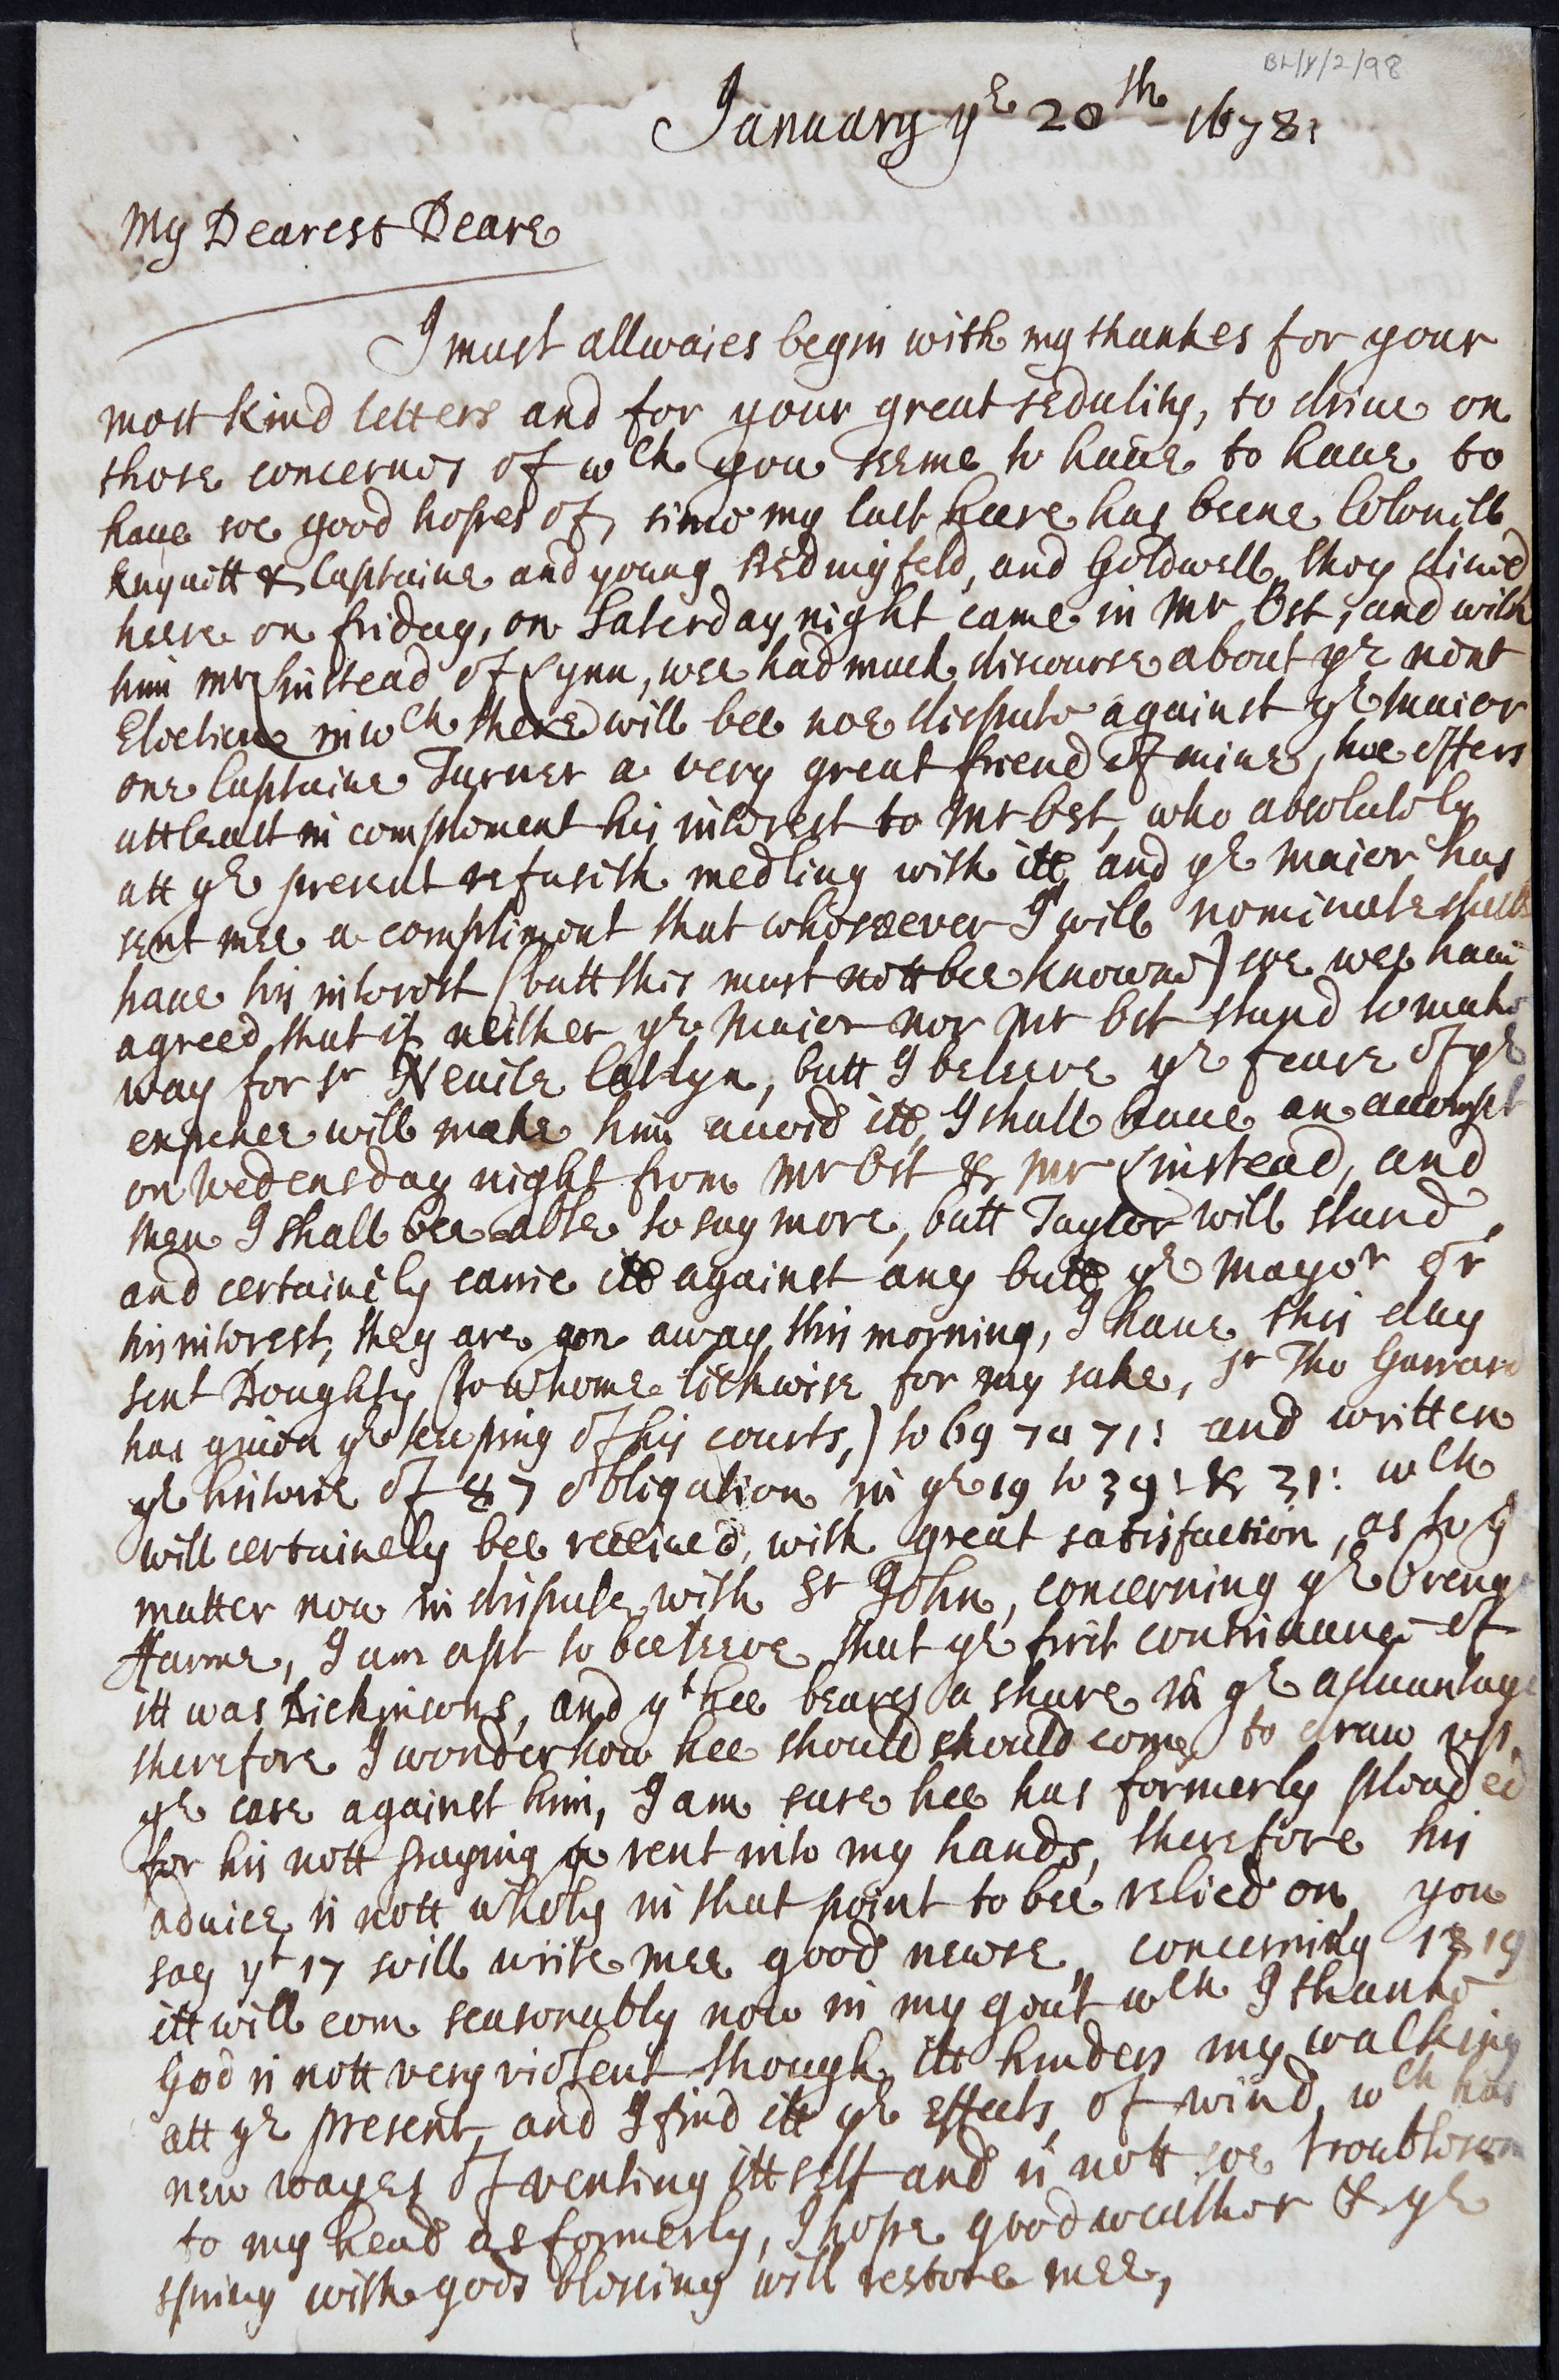 BL/Y/2/98
January ye 20th 1678:
My Dearest Deare
I must allwaies begin with my thankes for your
most kind letters and for your great sedulity, to driue on
those concernes of wch you seeme to haue to haue to
haue soe good hopes of, since my last heere has beene Colonill
Knyuitt & Captaine and young Bedingfeld, and Goldwell they dined
heere on friday, on Saterday night came in Mr Ost, and with
him mr Kinstead of Lynn, wee had much discourse about ye next
Election in wch there will bee noe dispute against ye Maior
one Captaine Turner a very great friend of mine, hee offers
attleast in complement his interest to Mr Ost, who absolutely
att ye present refusith medling with itt, and ye Maior has
sent mee a compliment that whosoever I will nominate shall
haue his interest (butt this must nott bee knowne) soe wee haue
agreed that if neither ye Maior nor Mr Ost stand to make
way for Sr Neuile Catlyn, butt I beleeve ye feare of ye
expence will make him auoid itt, I shall haue an accompt
on Wedensday night from Mr Ost & Mr Kinstead, and
then I shall bee able to say more, butt Taylor will stand,
and certainely carrie itt against any butt ye Mayor or
his interest, they are gon away this morning, I haue this day
sent Doughty (to whome likewise for my sake, Sr Tho Garrard
has giuen ye keeping of his courts,) to 69 70 71: and written
ye historie of 87 obligation in ye 19 to 39: & 31: wch
will certainely bee receiued, with great satisfaction, as to ye
matter now in dispute with St John, concerning ye
Farme, I am apt to beeleeve that ye first contriuance of
itt was Dickinsons, and yt hee beares a share in ye aduantage
therefore I wonder how hee should should come to draw up
ye case against him, I am sure hee has formerly pleaded
for his nott paying ye rent into my hands, therefore his
aduice is nott wholy in that point to bee relied on, you
say yt 17 will write mee good newse, concerning 18 19
itt will com seasonably now in my gout wch I thanke
God is nott very violent though itt hinders my walking
att ye present, and I find itt ye effects of wind, wch has
new wayes of venting itt self and is nott soe troublesom
to my head as formerly, I hope good weather & ye
spring with gods blessing will restore mee,